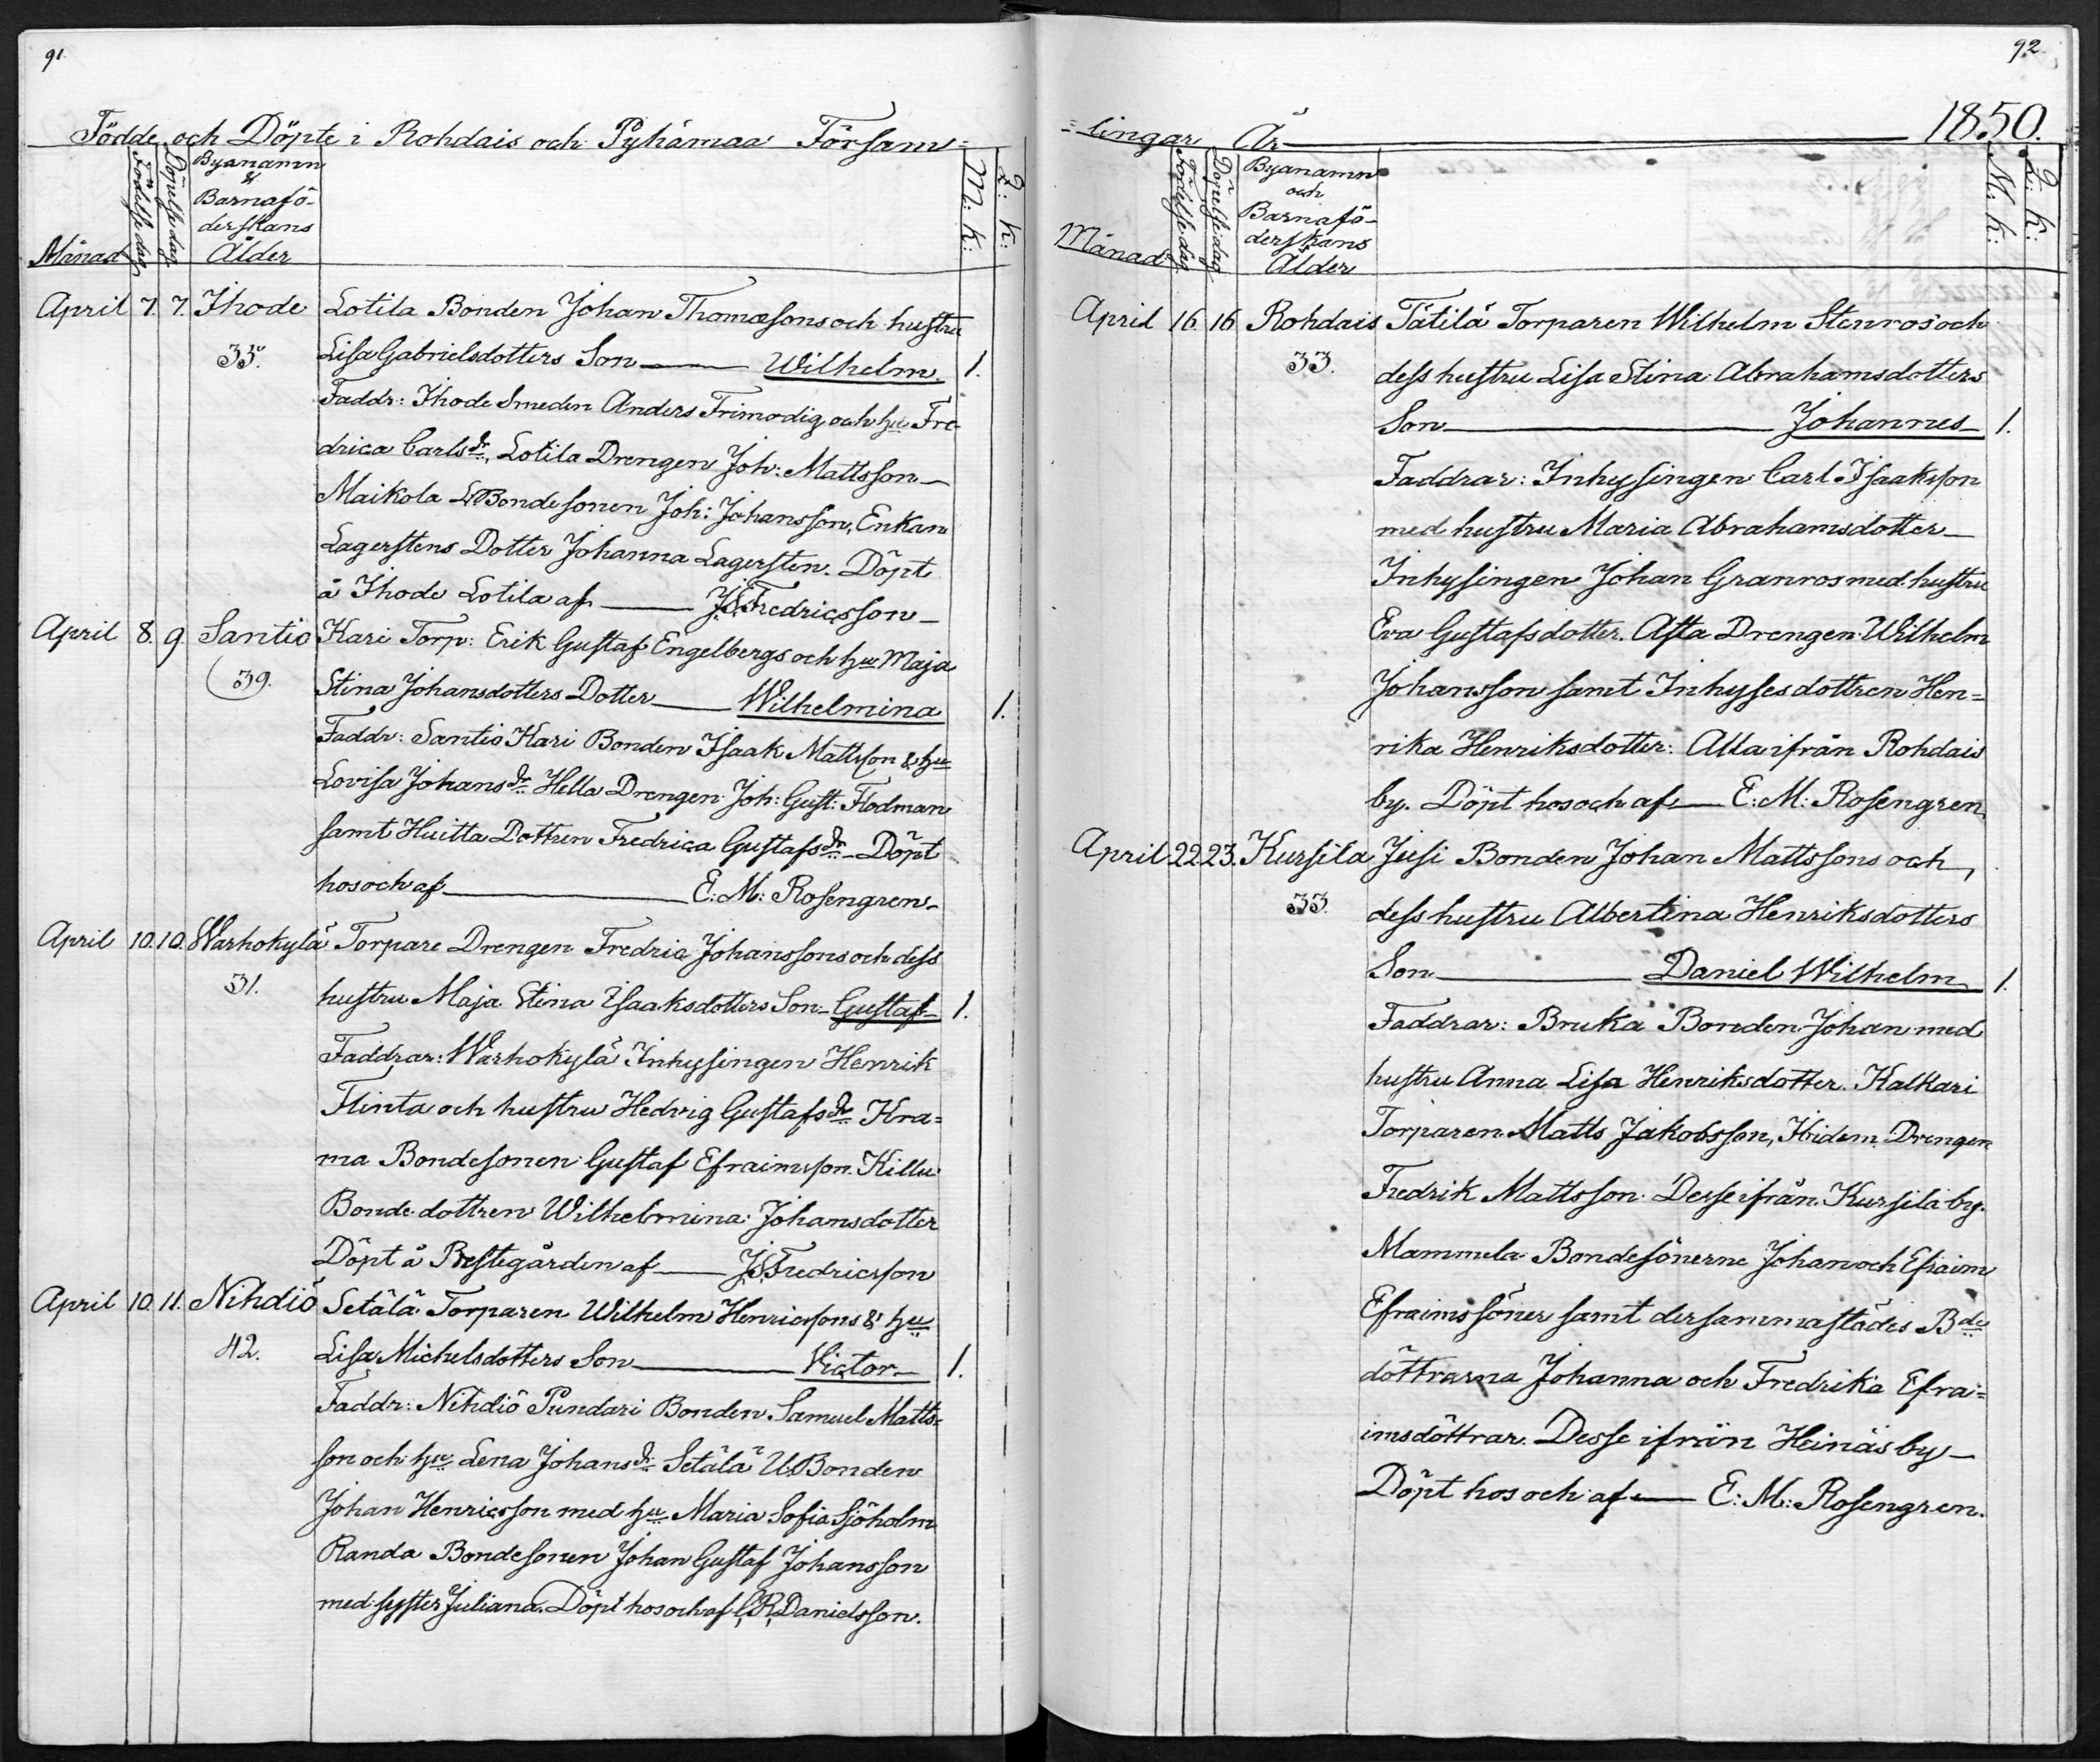 91.
Födde och Döpte i Rohdais och Pyhämaa Försam=
Månad
Födelsedag
Döpelsedag
Byanamn
&
Barnafö-
derskans
Ålder
M: k:
Q: k:
April 7. 7. Ihode Lotila Bonden Johan Thomæsons och hustru
33. Lisa Gabrielsdotters Son — Wilhelm. 1.
Faddr: Ihode Smeden Anders Frimodig och hu Fre-
drica Carlsdr, Lotila Drengen Joh: Mattsson —
Maikola Bondesonen Joh: Johansson, Enkan
Lagerstens Dotter Johanna Lagersten. Döpt
å Ihode Lotila af — J.S.Fredricsson —
April 8. 9. Santio Kari Torp: Erik Gustaf Engelbergs och hu Maja
39. Stina Johansdotters Dotter — Wilhelmina 1.
Faddr: Santio Kari Bonden Isaak Mattsson & hu
Lovisa Johansdr Hella Drengen Joh: Gust: Flodman
samt Huitta Dottren Fredrica Gustafsdr — Döpt
hos och af — E: M: Rosengren —
April 10. 10. Warhokylä Torpare Drengen Fredric Johanssons och dess
31. hustru Maja Stina Isaaksdotters Son — Gustaf — 1.
Faddrar: Warhokylä Inhysingen Henrik
Flinta och hustru Hedvig Gustafsdr Kra=
ma Bondesonen Gustaf Efraimsson. Killu
Bonde dottren Wilhelmina Johansdotter
Döpt å Prestegården af — J.S.Fredricsson
April 10. 11. Nihdiö Setälä Torparen Wilhelm Henricssons & hu
42. Lisa Michelsdotters Son — Victor — 1.
Faddr: Nihdiö Pundari Bonden Samuel Matts=
son och hu Lena Johansdr Setälä U.Bonden
Johan Henricsson med hu Maria Sofia Sjöholm
Randa Bondesonen Johan Gustaf Johansson
med syster Juliana. Döpt hos och af C.R.Danielsson.
92.
=lingar År — 1850.
Månad
Födelsedag
Döpelsedag
Byanamn
och
Barnafö-
derskans
Ålder
M. k:
Q: k:
April 16. 16 Rohdais Tätilä Torparen Wilhelm Stenros och
33. dess hustru Lisa Stina Abrahamsdotters
Son — Johannes — 1.
Faddrar: Inhysingen Carl Isaaksson
med hustru Maria Abrahamsdotter —
Inhysingen Johan Granros med hustru
Eva Gustafsdotter. Asta Drengen Wilhelm
Johansson samt Inhysesdottren Hen=
rika Henriksdotter: Alla ifrån Rohdais
by. Döpt hos och af — E: M: Rosengren
April 22. 23. Kursila Jusi Bonden Johan Mattssons och
33. dess hustru Albertina Henriksdotters
Son — Daniel Wilhelm 1.
Faddrar: Bruka Bonden Johan med
hustru Anna Lisa Henriksdotter. Kalkari
Torparen Matts Jakobsson, Ibidem Drengen
Fredrik Mattsson. Desse ifrån Kursila by.
Mammela Bondesönerne Johan och Efraim
Efraimssöner samt dersammastädes Bde
döttrarna Johanna och Fredrika Efra=
imsdöttrar. Desse ifrån Heinäs by —
Döpt hos och af — E: M: Rosengren.